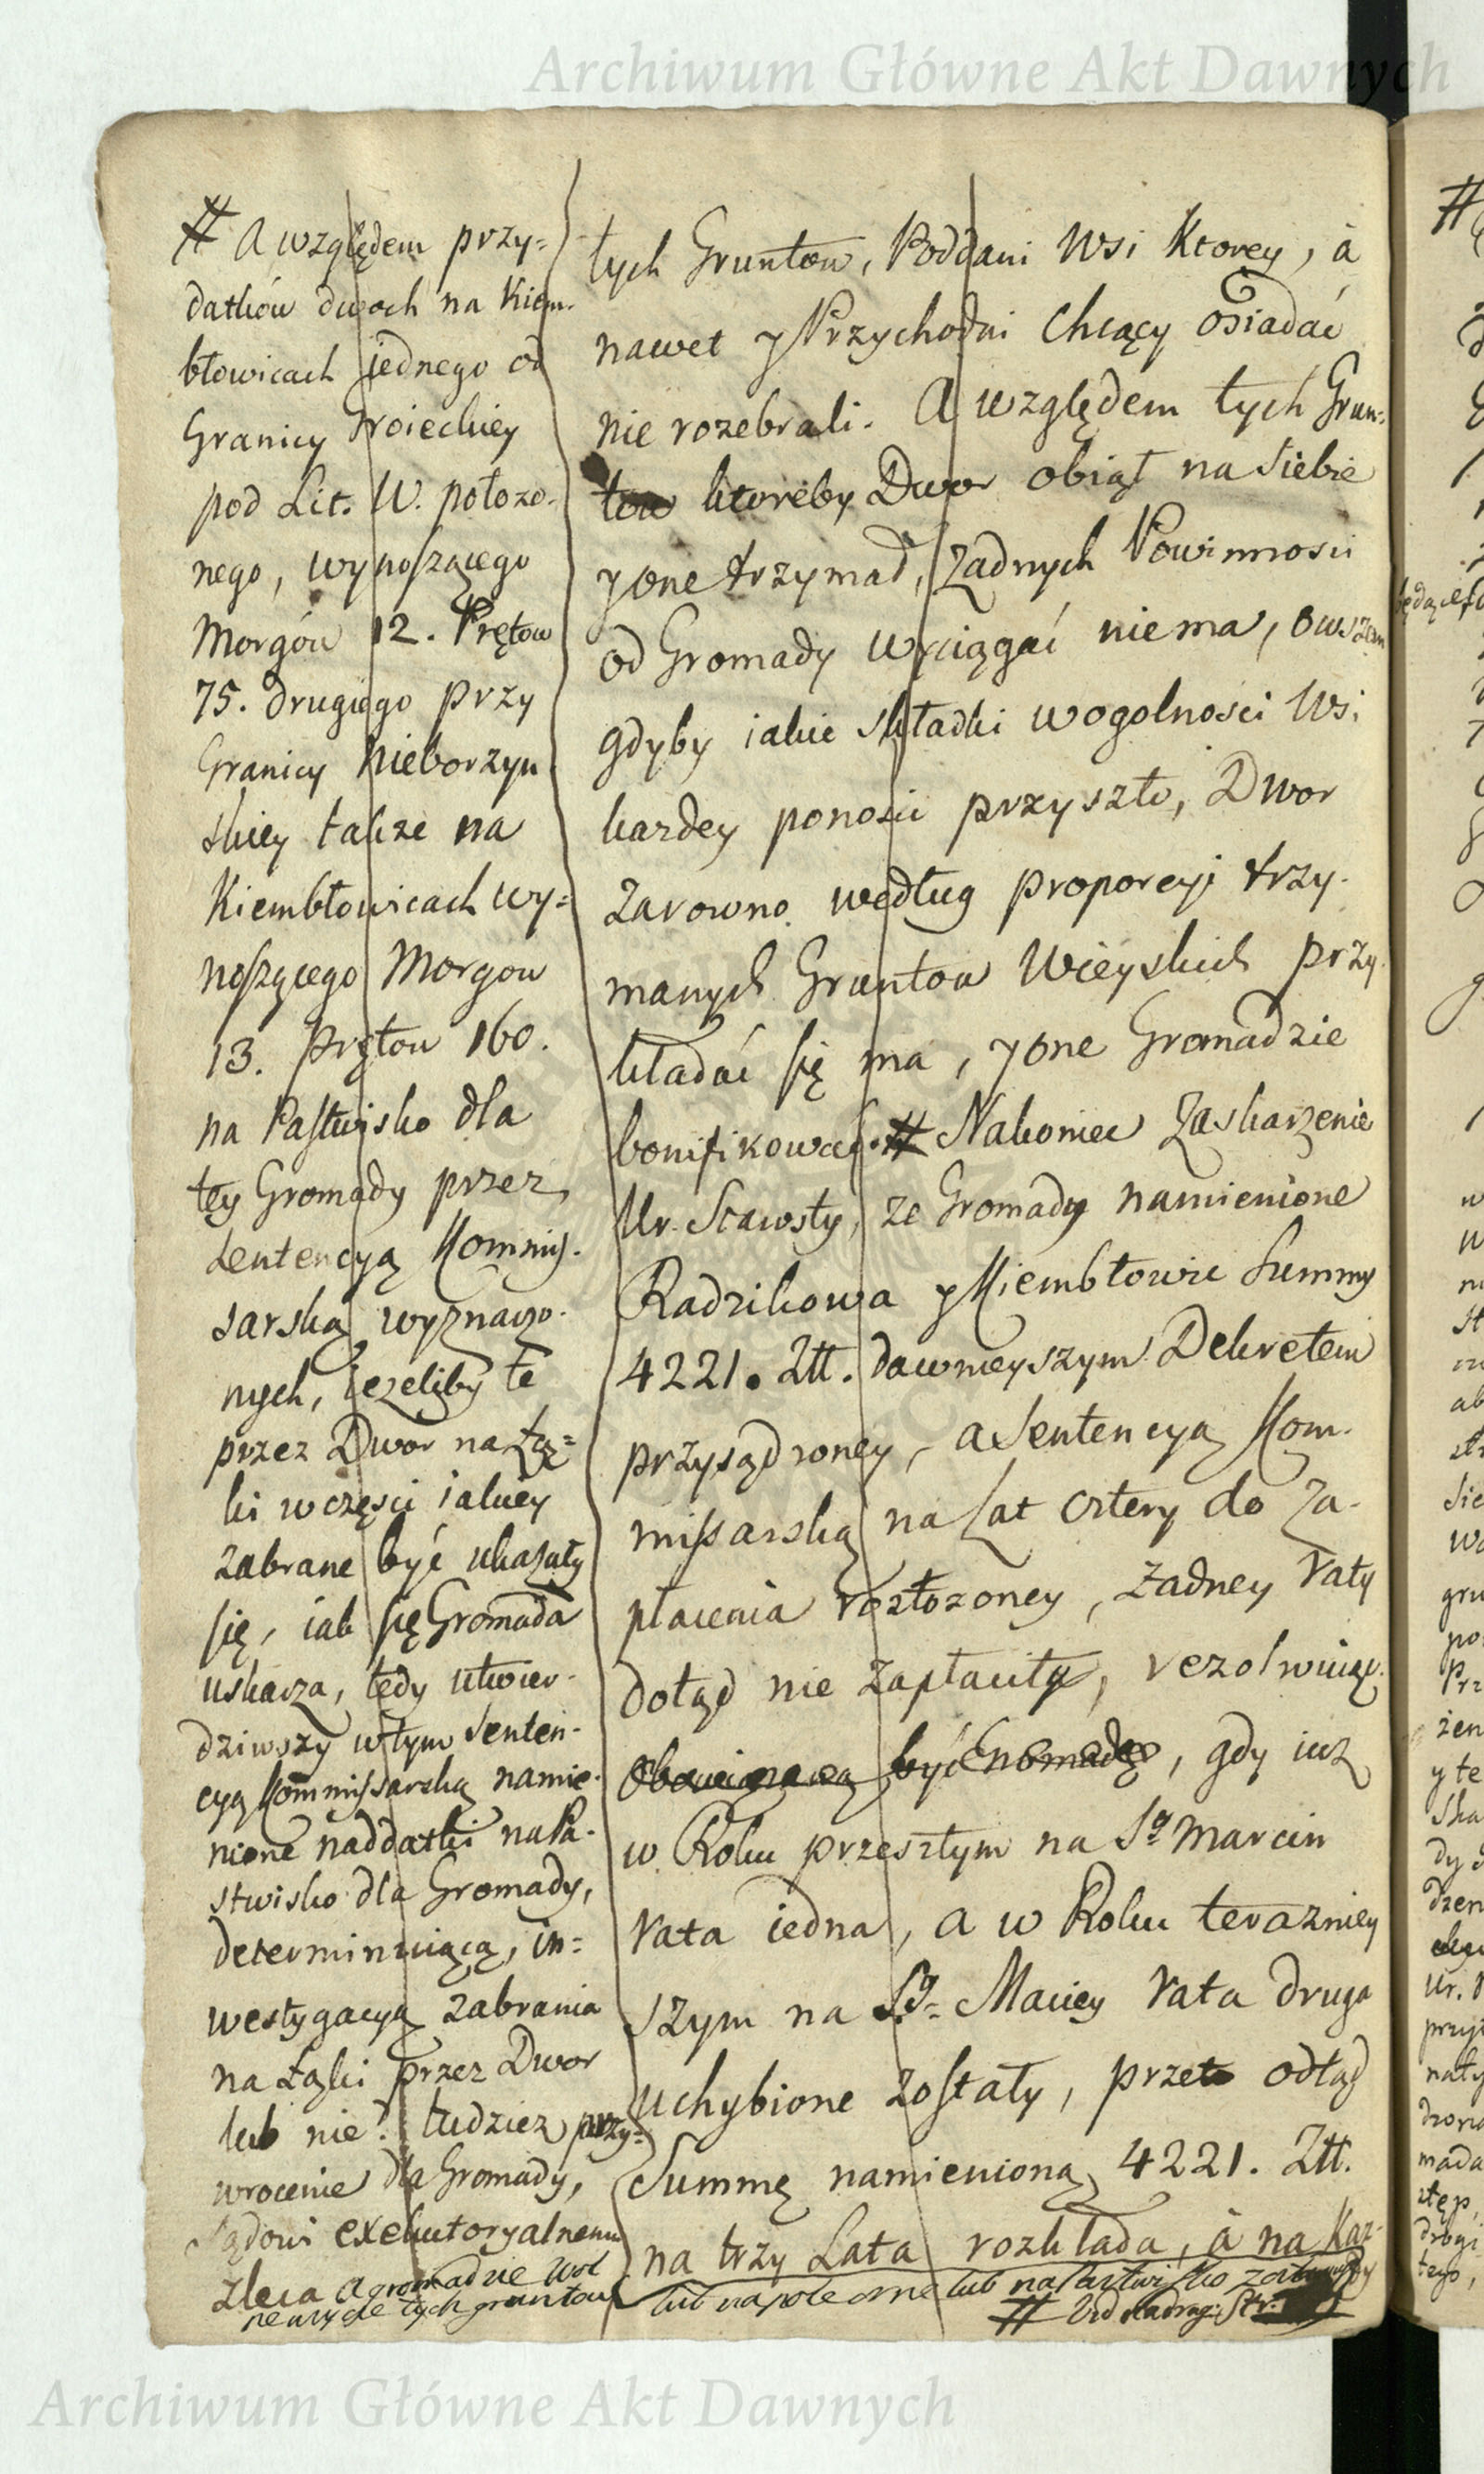 Archiwum Główne Akt Dawnych
# A względem przy=
datków dwoch na Kiem-
błowicach jednego od
Granicy Troieckiey
pod Lit. W. położo-
nego, wynoszącego
Morgów 12. Prętow
75. drugiego przy
Granicy Nieborzyn
skiey także na
Kiembłowicach wy=
noszącego Morgow
13. Prętow 160.
na Pastwisko dla
tey Gromady przez
Sentencyą Kommis-
sarską wyznaczo-
nych, ieżeliby te
przez Dwor na Łą=
ki w części iakiey
zabrane być ukazały
się, iak się Gromada
uskarza, tedy utwier-
dziwszy w tym Senten-
cyą Kommissarską namie-
nione naddatki na Pa-
stwisko dla Gromady,
determinuiącą, in=
westygacyą zabrania
na Łąki przez Dwor
lub nie? tudziez przy=
wrocenie dla Gromady,
Sądowi exekutoryalnemu
zleca a gromadzie wol
ne uzycie tych gruntow
lub na pole orne lub na Pastwisko
tych Gruntow, Poddani Wsi Ktorey, à
nawet y Przychodni Chcący Osiadać
nie rozebrali. A względem tych Grun=
tow ktoreby Dwor obiął na Siebie
y one trzymał, Zadnych Powinnosci
od Gromady wyciągać niema, owszem
gdyby iakie składki wogolności Wsi
kazdey ponosic przyszło, Dwor
Zarowno według proporcyi trzy-
manych Gruntow Wieyskich przy-
kładać się ma, y one Gromadzie
bonifikować. # Nakoniec Zaskarzenie
Ur. Starosty, ze Gromady namienione
Radzikowa y Kiembłowic Summy
4221. Złł. dawnieyszym Dekretem
przysądzoney, a Sentencyą Kom-
missarską na Lat cztery do Za-
płacenia rozłozoney, żadney raty
dotąd nie zapłaciły, rezolwuiąc
być Gromadę, gdy iuz
w Roku przeszłym na Sº Marcin
rata iedna, a w Roku terazniey
szym na Sº= Maciey rata druga
uchybione zostały, przeto odtąd
Summę namienioną 4221. Złł.
na trzy Lata rozkłada, à na Kaz-
# Vid na drug: Str:
Archiwum Główne Akt Dawnych